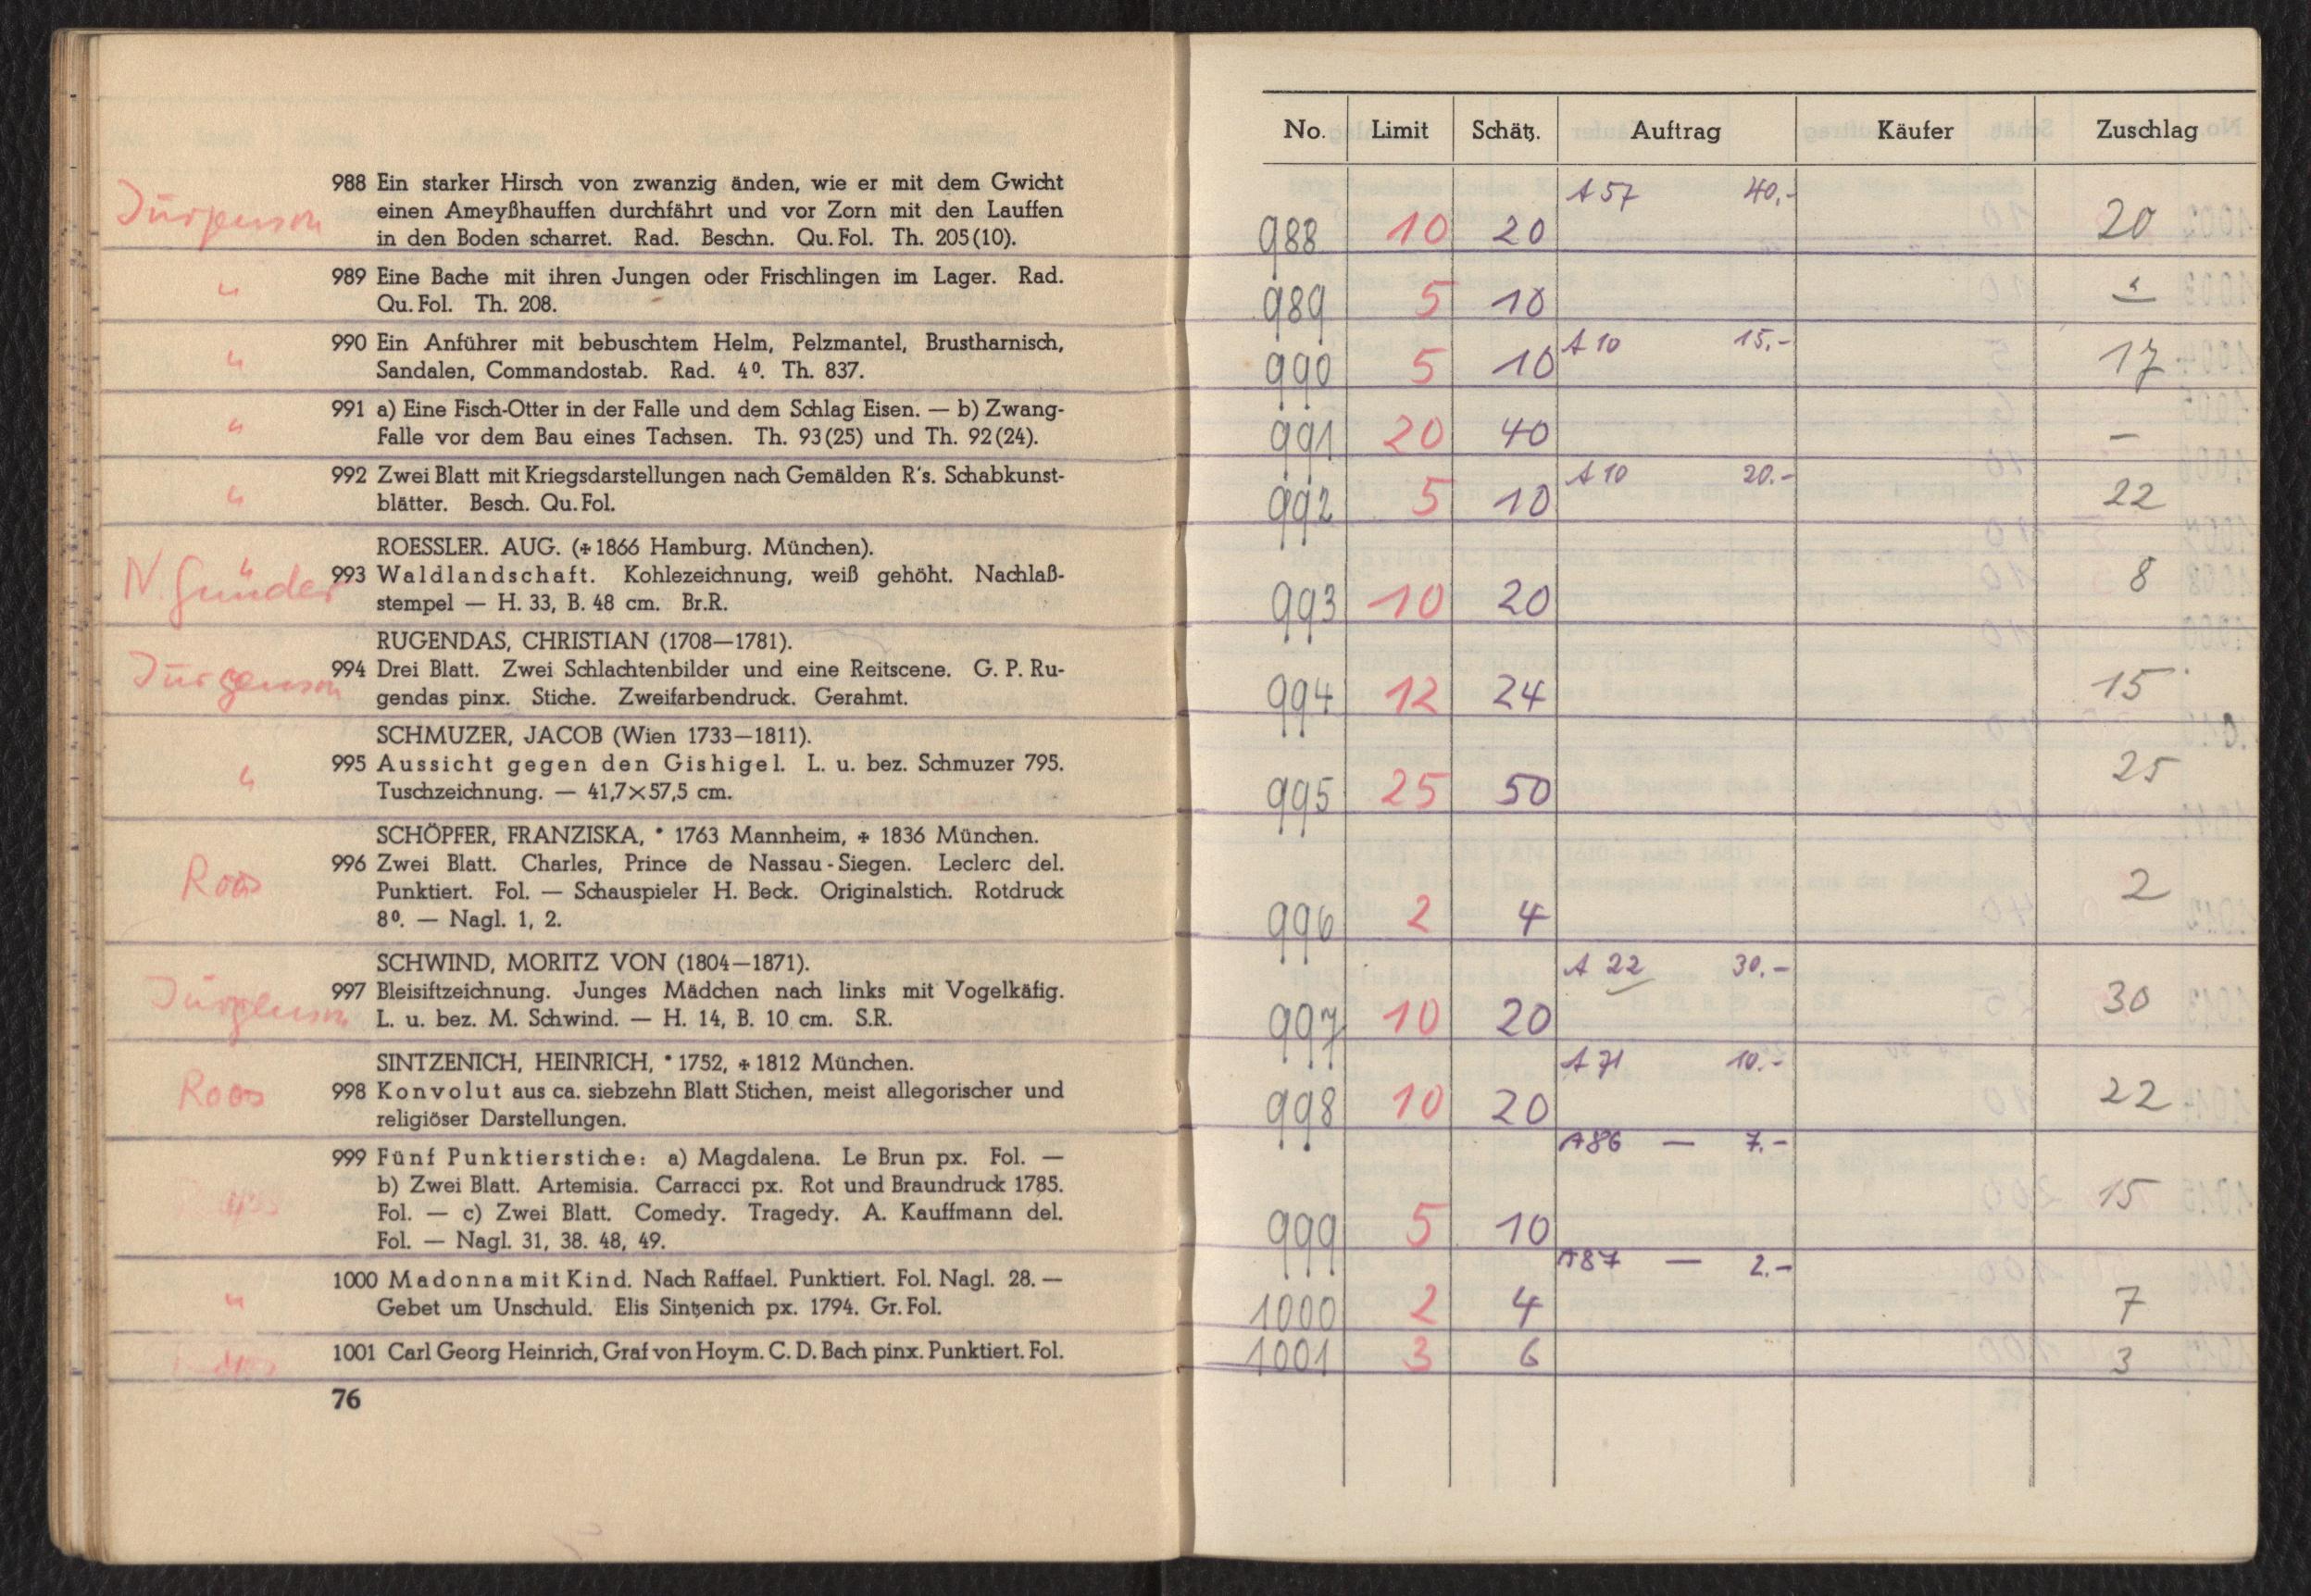 988 Ein starker Hirsch von zwanzig änden, wie er mit dem Gwicht
einen Ameyßhauffen durchfährt und vor Zorn mit den Lauffen
in den Boden scharret. Rad. Beschn. Qu. Fol. Th. 205 (10).
989 Eine Bache mit ihren Jungen oder Frischlingen im Lager. Rad.
Qu. Fol. Th. 208.
990 Ein Anführer mit bebuschtem Helm, Pelzmantel, Brustharnisch,
Sandalen, Commandostab. Rad. 4⁰. Th. 837.
991 a) Eine Fisch-Otter in der Falle und dem Schlag Eisen. — b) Zwang-
Falle vor dem Bau eines Tachsen. Th. 93 (25) und Th. 92 (24).
992 Zwei Blatt mit Kriegsdarstellungen nach Gemälden R's. Schabkunst-
blätter. Besch. Qu. Fol.
ROESSLER. AUG. (✠ 1866 Hamburg. München).
N. Günder 993 Waldlandschaft. Kohlezeichnung, weiß gehöht. Nachlaß-
stempel — H. 33, B. 48 cm. Br.R.
RUGENDAS, CHRISTIAN (1708—1781).
Jürgenson 994 Drei Blatt. Zwei Schlachtenbilder und eine Reitscene. G. P. Ru-
gendas pinx. Stiche. Zweifarbendruck. Gerahmt.
SCHMUZER, JACOB (Wien 1733—1811).
995 Aussicht gegen den Gishigel. L. u. bez. Schmuzer 795.
Tuschzeichnung. — 41,7×57,5 cm.
SCHÖPFER, FRANZISKA, * 1763 Mannheim, ✠ 1836 München.
Roos 996 Zwei Blatt. Charles, Prince de Nassau-Siegen. Leclerc del.
Punktiert. Fol. — Schauspieler H. Beck. Originalstich. Rotdruck
8⁰. — Nagl. 1, 2.
SCHWIND, MORITZ VON (1804—1871).
Jürgenson 997 Bleisiftzeichnung. Junges Mädchen nach links mit Vogelkäfig.
L. u. bez. M. Schwind. — H. 14, B. 10 cm. S.R.
SINTZENICH, HEINRICH, * 1752, ✠ 1812 München.
Roos 998 Konvolut aus ca. siebzehn Blatt Stichen, meist allegorischer und
religiöser Darstellungen.
999 Fünf Punktierstiche: a) Magdalena. Le Brun px. Fol. —
b) Zwei Blatt. Artemisia. Carracci px. Rot und Braundruck 1785.
Fol. — c) Zwei Blatt. Comedy. Tragedy. A. Kauffmann del.
Fol. — Nagl. 31, 38. 48, 49.
1000 Madonna mit Kind. Nach Raffael. Punktiert. Fol. Nagl. 28. —
Gebet um Unschuld. Elis Sintzenich px. 1794. Gr. Fol.
1001 Carl Georg Heinrich, Graf von Hoym. C. D. Bach pinx. Punktiert. Fol.
76
No. Limit Schätz. Auftrag Käufer Zuschlag
A 57 40,-
988 10 20 20
989 5 10
A 10 15,-
990 5 10 17
991 20 40 —
A 10 20.-
992 5 10 22
993 10 20 8
994 12 24 15
995 25 50 25
996 2 4 2
A 22 30.-
997 10 20 30
A 71 10.-
998 10 20 22
A86 — 7.-
999 5 10 15
A87 — 2.-
1000 2 4 7
1001 3 6 3